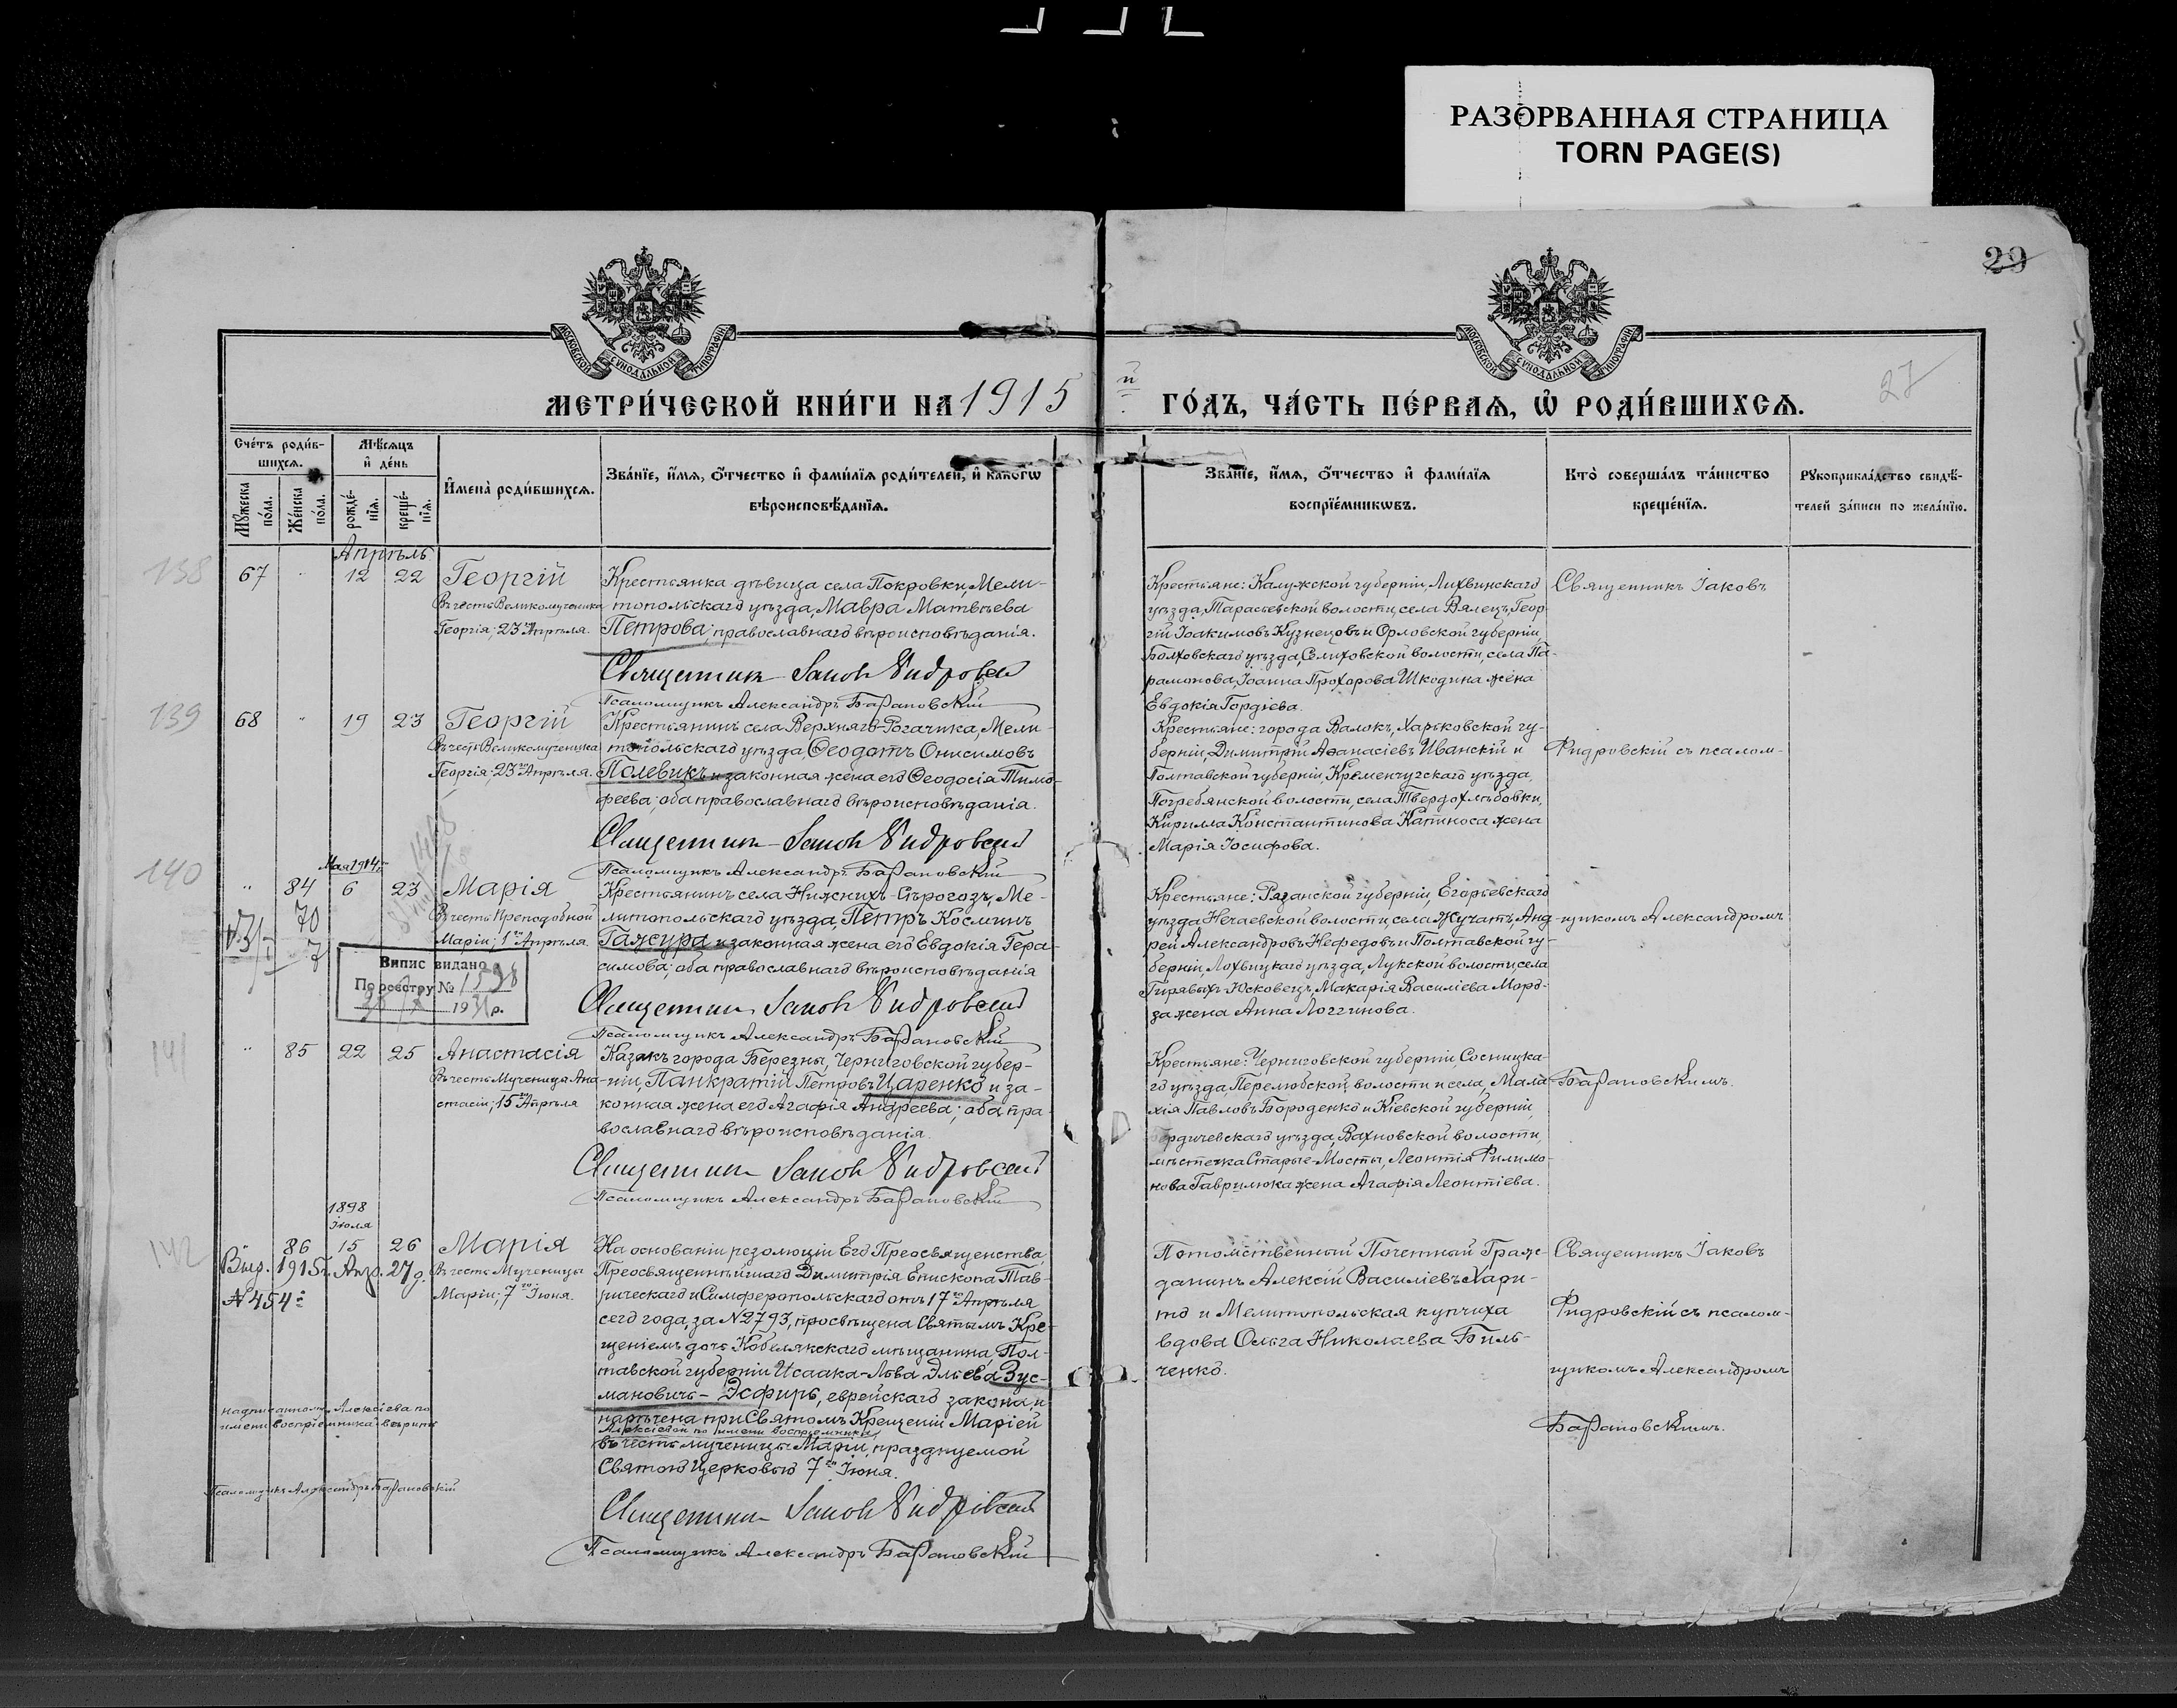 РАЗОРВАННАЯ СТРАНИЦА
TORN PAGE(S)
29
27
МОСКОВСКОЙ СѴНОДАЛЬНОЙ ТИПОГРАФІИ
МОСКОВСКОЙ СѴНОДАЛЬНОЙ ТИПОГРАФІИ
МЕТРИ́ЧЕСКОЙ КНИ́ГИ НА 1915 й ГО́ДЪ, ЧА́СТЬ ПЕ́РВАѦ, Ѡ҆ РОДИ́ВШИХСѦ.
Сче́тъ роди́в-
шихсѧ.
Мꙋ́жеска по́ла.
Же́нска по́ла.
Мѣ́сѧцъ
и҆ де́нь
рожде́-
нїѧ.
креще́-
нїѧ.
И҆мена̀ роди́вшихсѧ.
Зва́нїе, и҆́мѧ, ѻ҆́тчество и҆ фами́лїѧ роди́телей, и҆ како́гѡ
вѣроисповѣ́данїѧ.
Зва́нїе, и҆́мѧ, ѻ҆́тчество и҆ фами́лїѧ
воспрїе́мникѡвъ.
Кто̀ соверша́лъ та́инство
креще́нїѧ.
Рꙋкоприкла́дство свидѣ́-
телей за́писи по жела́нїю.
Апрѣль
138
67 " 12 22 Георгій
Въ честь Великомученика
Георгія; 23го Апрѣля.
Крестьянка дѣвица села Покровки, Мели-
топольскаго уѣзда, Мавра Матвѣева
Петрова; православнаго вѣроисповѣданія.
Священникъ Іаковъ Фидровскій
Псаломщикъ Александръ Барановскій
Крестьяне: Калужской губерніи, Лихвинскаго
уѣзда, Тарасьевской волости, села Вялецъ, Геор-
гій Іоакимовъ Кузнецовъ и Орловской губерніи,
Болховскаго уѣзда, Селиховской волости, села Па-
рамонова, Іоанна Прохорова Шкодина жена
Евдокія Гордіева.
Священникъ Іаковъ
139
68 " 19 23 Георгій
Въ честь Великомученика
Георгія; 23го Апрѣля.
Крестьянинъ села Верхняго-Рогачика, Мели-
топольскаго уѣзда, Ѳеодотъ Онисимовъ
Полевикъ и законная жена его Ѳеодосія Тимо-
феева; оба православнаго вѣроисповѣданія.
Священникъ Іаковъ Фидровскій
Псаломщикъ Александръ Барановскій
Крестьяне: города Валокъ, Харьковской гу-
берніи, Димитрій Аѳанасіевъ Иванскій и
Полтавской губерніи, Кременчугскаго уѣзда,
Погребянской волости, села Твердохлѣбовки,
Кирилла Константинова Катноса жена
Марія Іосифова.
Фидровскій съ псалом-
140
Мая 1914 г.
" 84 6 23 Марія
Въ честь Преподобной
Маріи; 1го Апрѣля.
70
7
Випис видано
По реєстру № 1598
1931 р.
Крестьянинъ села Нижнихъ-Сѣрогозъ, Ме-
литопольскаго уѣзда, Петръ Косминъ
Гажура и законная жена его Евдокія Гера-
симова; оба православнаго вѣроисповѣданія
Священникъ Іаковъ Фидровскій
Псаломщикъ Александръ Барановскій
Крестьяне: Рязанской губерніи, Егорьевскаго
уѣзда, Нечаевской волости, села Жучатъ, Анд-
рей Александровъ Нефедовъ и Полтавской гу-
берніи, Лохвицкаго уѣзда, Лукской волости, села
Гирявыхъ-Юсковецъ, Макарія Василіева Морд-
за жена Анна Логгинова.
щикомъ Александромъ
141
" 85 22 25 Анастасія
Въ честь Мученицы Ана-
стасіи; 15го Апрѣля
Казакъ города Березны, Черниговской губер-
ніи, Панкратій Петровъ Царенко и за-
конная жена его Агафія Андреева; оба пра-
вославнаго вѣроисповѣданія.
Священникъ Іаковъ Фидровскій
Псаломщикъ Александръ Барановскій
Крестьяне: Черниговской губерніи, Сосницка-
го уѣзда, Перелюбской волости и села, Мала-
хія Павловъ Бороденко и Кіевской губерніи,
Бердичевскаго уѣзда, Вахновской волости,
мѣстечка Старые-Мосты, Леонтія Филимо-
нова Гаврилюка жена Агафія Леонтіева.
Барановскимъ.
142
1898
Іюля
86 15 26 Марія
Въ честь Мученицы
Маріи; 7го Іюня.
Выд. 1915 г. Апр. 27 д.
№ 454
На основаніи резолюціи Его Преосвященства,
Преосвященнѣйшаго Димитрія Епископа Тав-
рическаго и Симферопольскаго отъ 17го Апрѣля
сего года, за № 2793, просвѣщена Святымъ Кре-
щеніемъ дочь Кобелякскаго мѣщанина, Пол-
тавской губерніи Исаака-Льва Эльева Зус-
мановичъ - Эсфирь, еврейскаго закона, и
наречена при Святомъ Крещеніи Маріей
Алексіевой по имени воспріемника
въ честь мученицы Маріи, празднуемой
Святою Церковью 7го Іюня.
Священникъ Іаковъ Фидровскій
Псаломщикъ Александръ Барановскій
Алексіева по
имени воспріемника вѣрить
Псаломщикъ Александръ Барановскій
Потомственный Почетный Граж-
данинъ Алексій Василіевъ Хари-
то и Мелитопольская купчиха
вдова Ольга Николаева Биль-
ченко.
Священникъ Іаковъ
Фидровскій съ псалом-
щикомъ Александромъ
Барановскимъ.